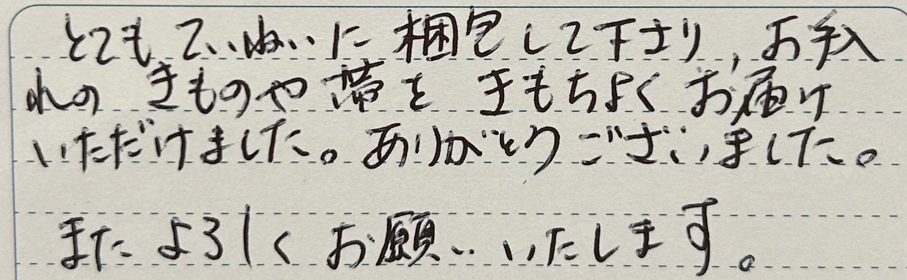 とてもていねいに梱包して下さり、お手入
れの きものや 帯を きもちよく お届け
いただけました。ありがとうございました。
また よろしく お願い いたします。